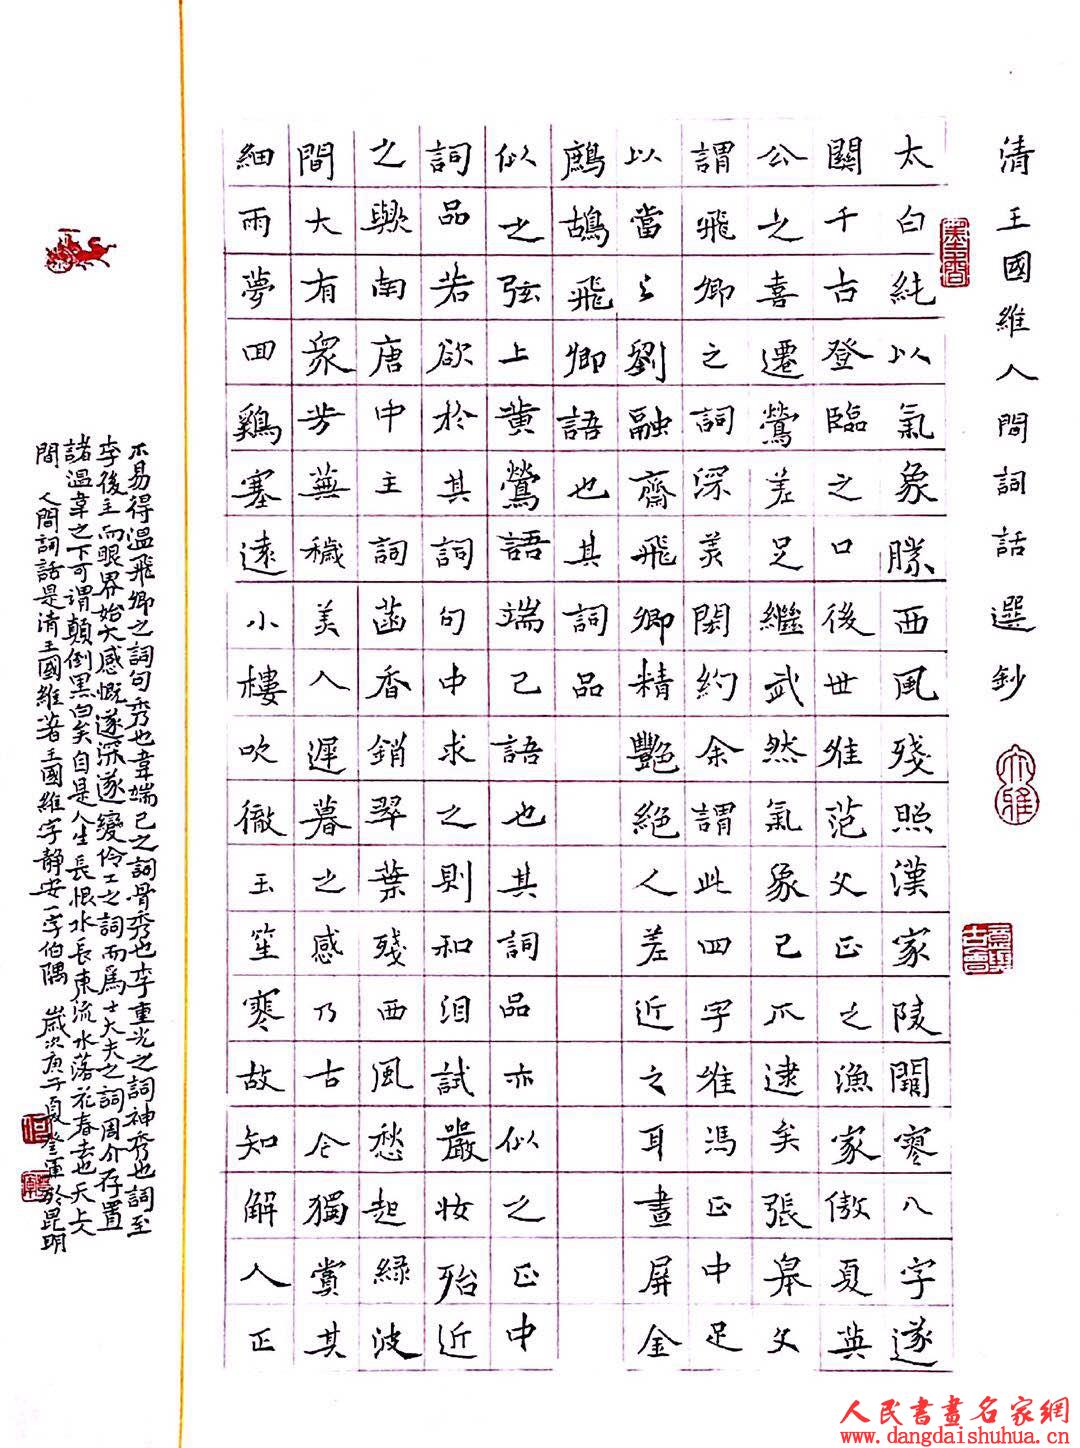 清王國維人間詞話選鈔
太白純以氣象勝西風殘照漢家陵闕寥八字遂
關千古登臨之口後世唯范文正之漁家傲夏英
公之喜遷鶯差足繼武然氣象已不逮矣張皋文
謂飛卿之詞深美閎約余謂此四字唯馮正中足
以當之劉融齋飛卿精艷絕人差近之耳畫屏金
鷓鴣飛卿語也其詞品
似之弦上黃鶯語端己語也其詞品亦似之正中
詞品若欲於其詞句中求之則和泪試嚴妝殆近
之歟南唐中主詞菡香銷翠葉殘西風愁起綠波
間大有衆芳蕪穢美人遲暮之感乃古今獨賞其
細雨夢回鷄塞遠小樓吹徹玉笙寒故知解人正
不易得溫飛卿之詞句秀也韋端己之詞骨秀也李重光之詞神秀也詞至
李後主而眼界始大感慨遂深遂變伶工之詞而爲士大夫之詞周介存置
諸溫韋之下可謂顛倒黑白矣自是人生長恨水長東流水落花春去也天上人
間 人間詞話是清王國維著王國維字靜安一字伯隅 歲次庚子夏登軍於昆明
大雅
人民書畫名家網
www.dangdaishuhua.cn